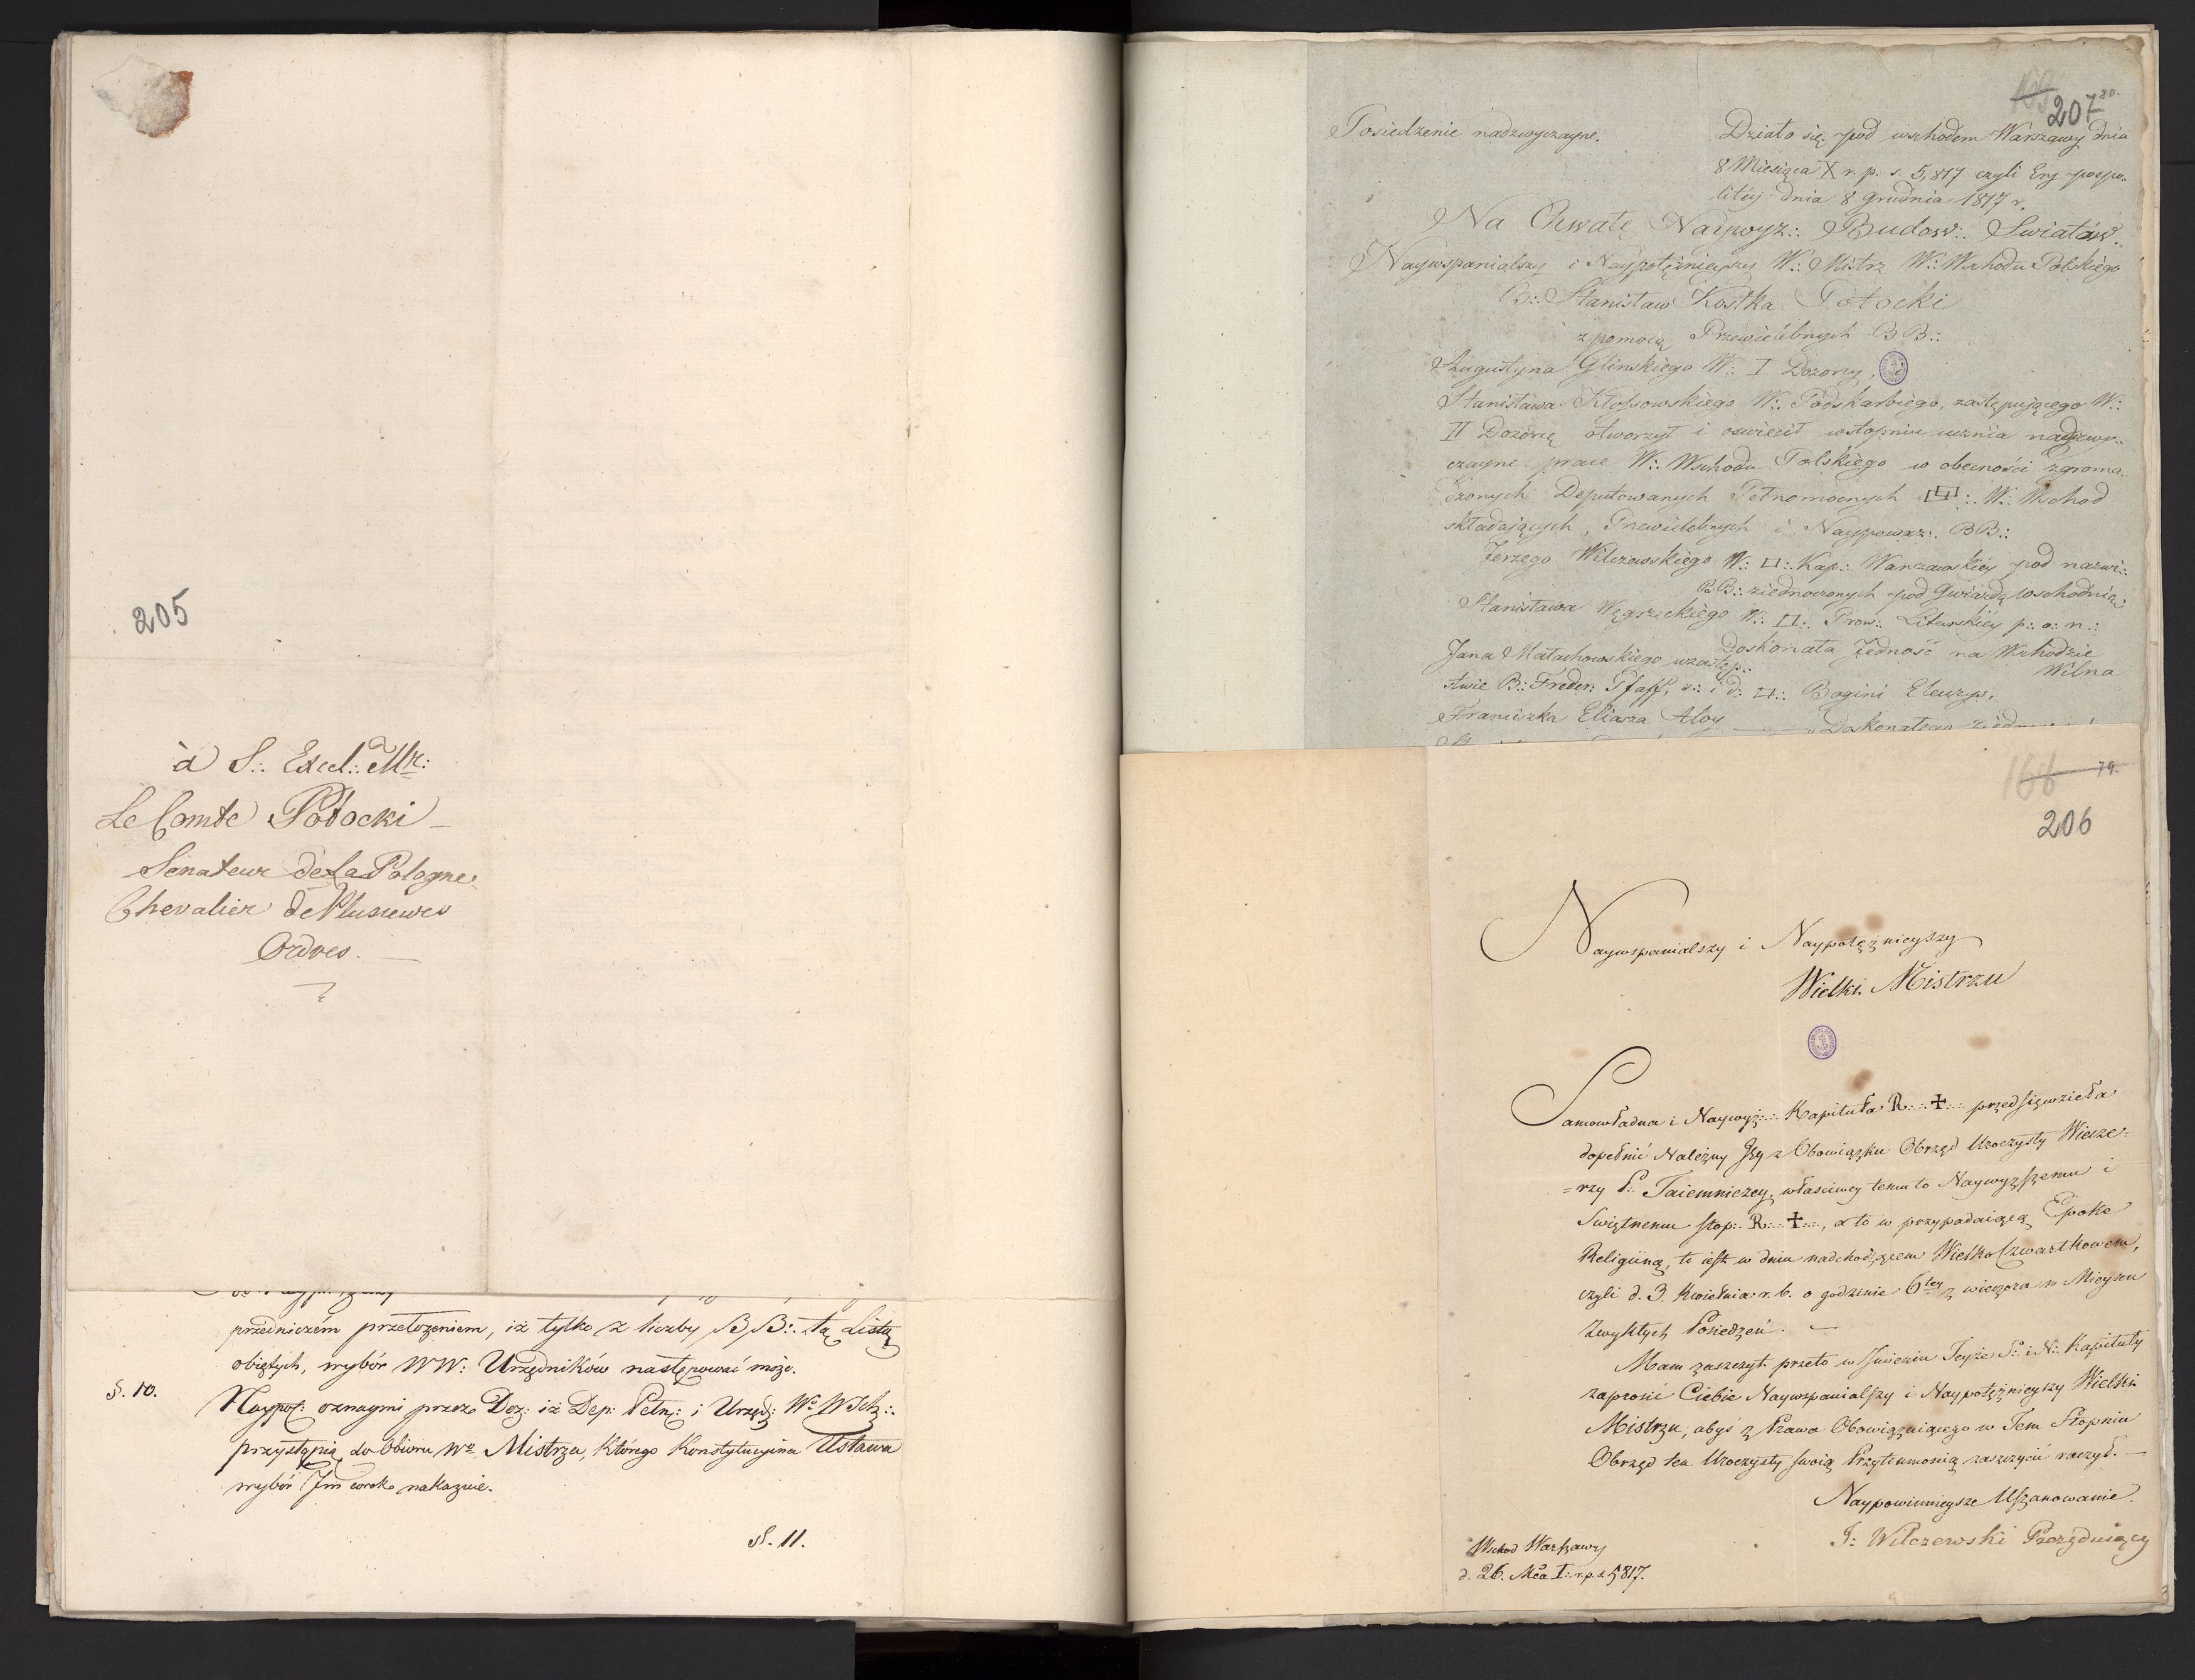 205
à S:. Excel:. Mr:
Le Comte Potocki
Senateur de La Pologne
Chevalier de Plusieurs
Ordres.
przedniczém przełożeniem, iż tylko z liczby BB:. tą Listą
obiętych, wybór WW: Urzędników następować może.
§. 10.
Naypoź: oznaymi przez Doz: iż Dep: Pełn: i Urzęd: Wo Wsch:.
przystąpią do Obioru Wo Mistrza, którego Konstytucyina Ustawa
wybór Im corok nakazuie.
§. 11.
207
80.
Posiedzenie nadzwyczayne.
Działo się pod wschodem Warszawy dnia
8 Miesiąca X r. p. s. 5,817 czyli Ery pospo-
litey dnia 8 Grudnia 1817 r.
Na Chwałę Naywyż:. Budow:. Swiatów.
Naywspanialszy i Naypotężnieyszy W:. Mistrz W:. Wschodu Polskiego
B:. Stanisław Kostka Potocki
z pomocą Przewielebnych BB:.
Augustyna Glinskiego W:. I Dozorcy,
Stanisława Kłossowskiego W:. Podskarbiego, zastępującego W:.
II Dozorcę otworzył i oswiecił w stopniu ucznia nadzwy-
czayne prace W:. Wschodu Polskiego w obecności zgroma-
dzonych Deputowanych Pełnomocnych W:. Wschod
składających, Przewielebnych i Naypoważ:. BB:.
Jerzego Wilczewskiego W:. □:. Kap:. Warszawskiey pod nazwi:.
BB:. ziednoczonych pod Gwiazdą wschodnią;
Stanisława Węgrzeckiego W:. □:. Prow:. Litewskiey p:. o:. n:.
Doskonała Jedność na Wschodzie
Wilna
Jana Małachowskiego w zastęp:.
stwie B:. Freder: Pfaff, z:. i d:. □:. Bogini Eleuzys,
Franciszka Eliasza Aloy — " Doskonałego
168
79.
206
Naywspanialszy i Naypotężnieyszy
Wielki Mistrzu
Samowładna i Naywyż:. Kapituła R:. ✝:. przedsięwzieła
dopełnić Należny Jey z Obowiązku Obrząd Uroczysty Wiecze=
=rzy P:. Taiemniczey, właściwey temu to Naywyższemu i
Swiętnemu stop:. R:. ✝:., a to w przypadaiącą Epokę
Religiiną, to iest w dniu nadchodzącem Wielko Czwartkowem,
czyli d. 3. Kwietnia r. b. o godzinie 6tey z wieczora w Mieyscu
Zwykłych Posiedzeń. —
Mam zaszczyt przeto w Imieniu Teyże S:. i N:. Kapituły
zaprosić Ciebie Naywspanialszy i Naypotężnieyszy Wielki
Mistrzu, abyś z Prawa Obowiązuiącego w Tem Stopniu
Obrząd ten Uroczysty swoią Przytomnoscią zaszczycić raczył. —
Naypowinnieysze Uszanowanie.
J: Wilczewski Przędniący
Wschod Warszawy
d. 26. Mca I:. r. p. s. 5817.